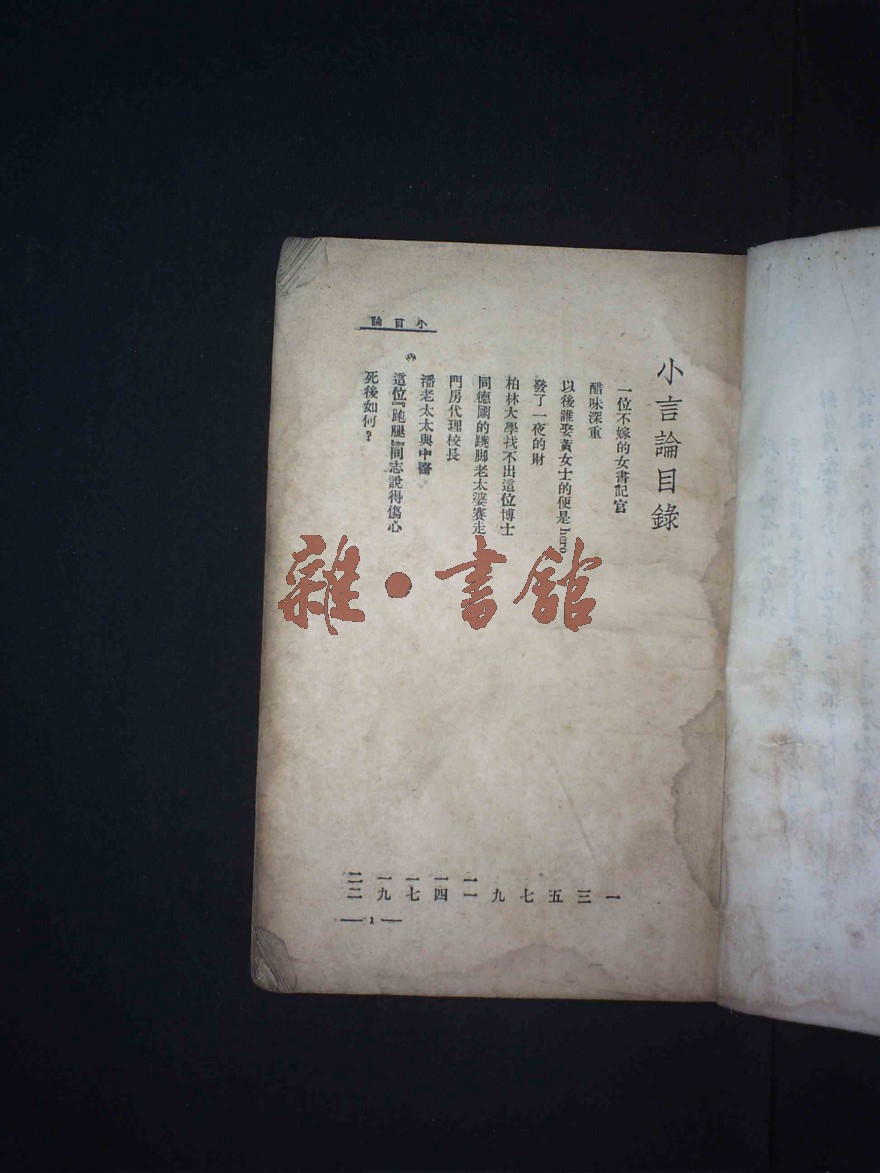 小言論目錄
一位不嫁的女書記官 一
醋味深重 三
以後誰娶黃女士的便是hero 五
發了一夜的財 七
柏林大學找不出這位博士 九
同德國的蹺脚老太婆賽走 一一
門房代理校長 一四
潘老太太與中醫 一七
這位『跑腿』同志說得傷心 一九
死後如何? 二二
小言論
— 1 —
雜·書館